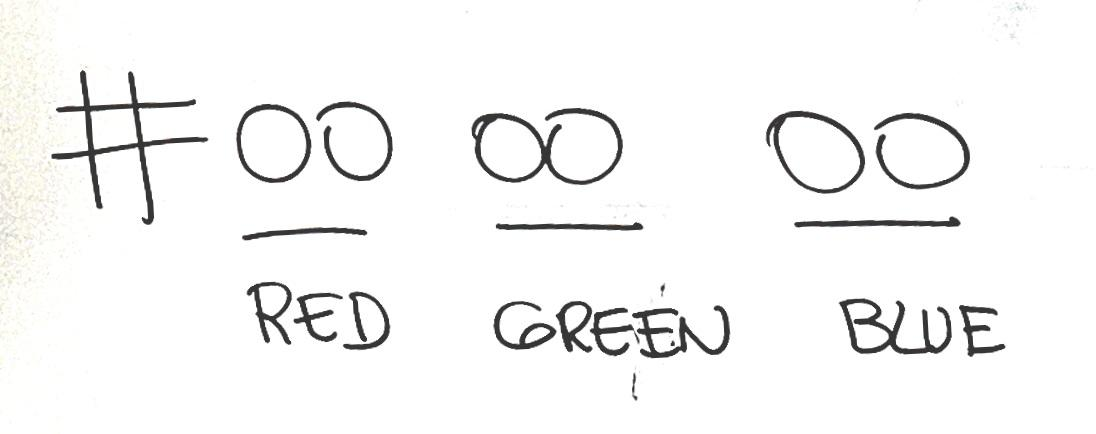 #00 00 00
RED GREEN BLUE